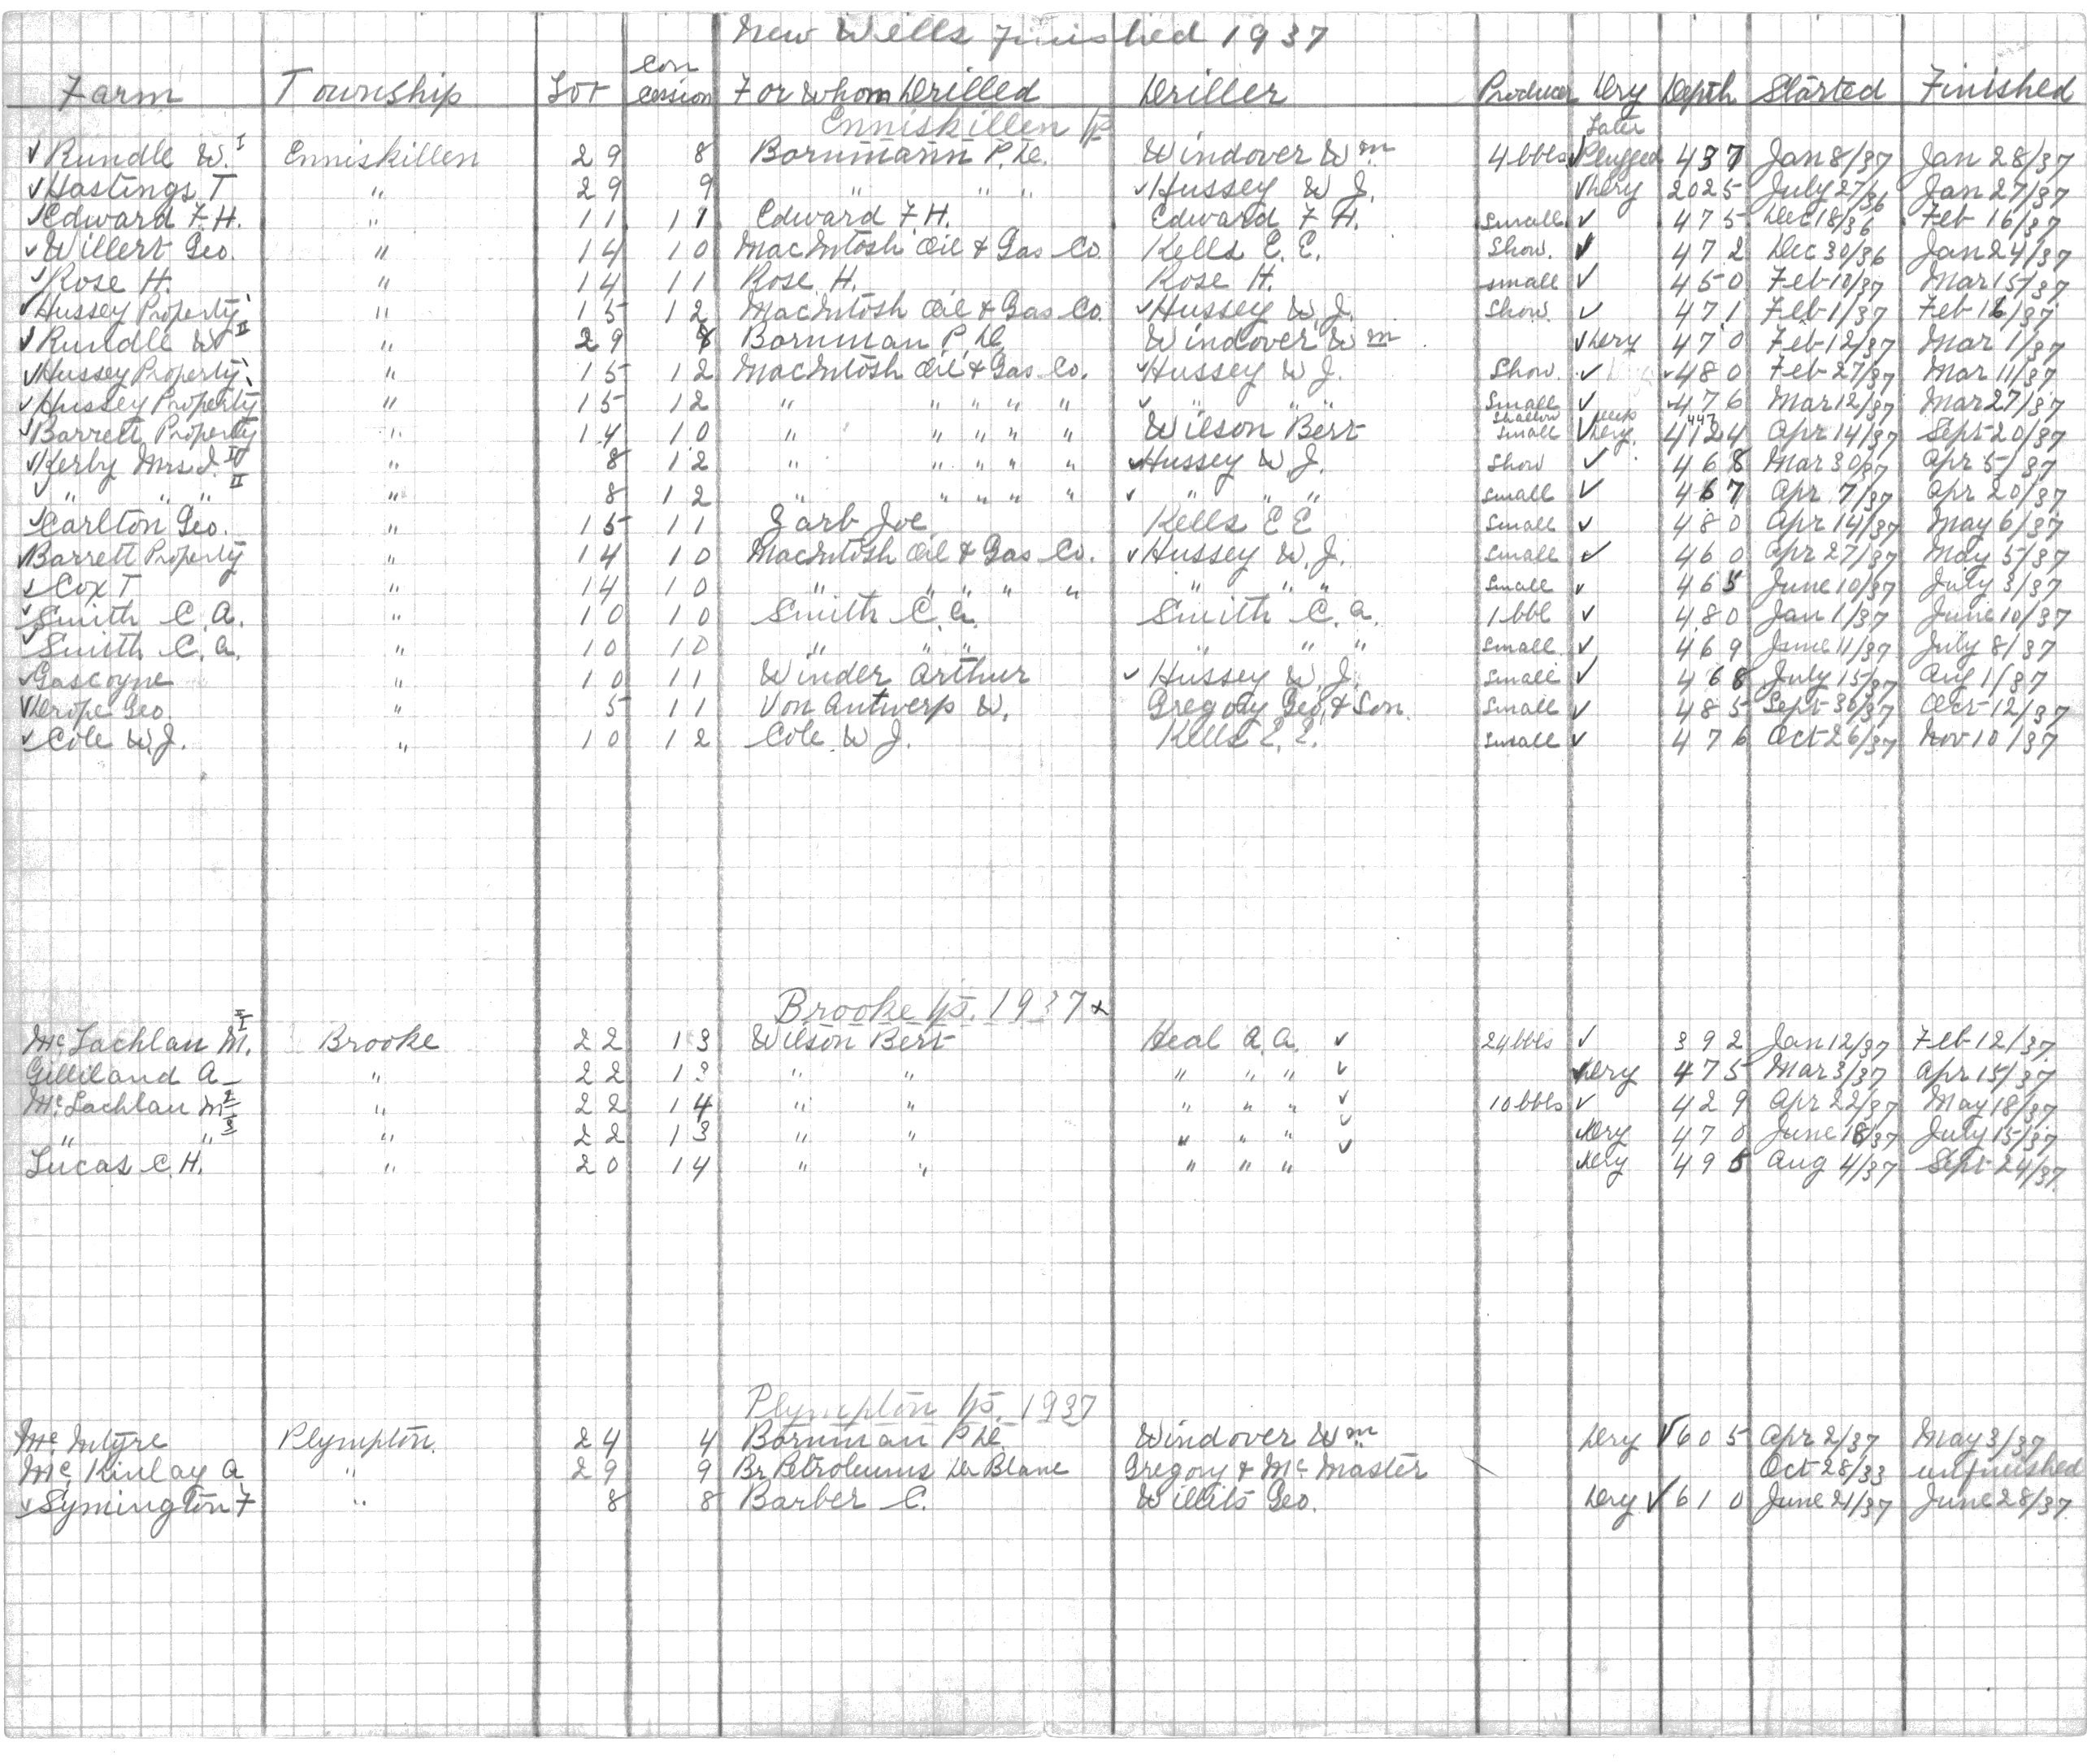 New Wells Finished 1937
Farm Township Lot Con cession For Whom Drilled Driller Producer Dry Depth Started Finished
Enniskillen Tp
Later
✓ Rundle W. I Enniskillen 29 8 Bornmann P. D. Windover Wm 4 bbls ✓ Plugged 437 Jan 8/37 Jan 28/37
✓ Hastings T " 29 9 " " " ✓ Hussey W J. ✓ Dry 2025 July 27/36 Jan 27/37
✓ Edward F. H. " 11 11 Edward F. H. Edward F H. Small ✓ 475 Dec 18/36 Feb 16/37
✓ Willert Geo. " 14 10 MacIntosh Oil & Gas Co. Kells E. E. Show. ✓ 472 Dec 30/36 Jan 24/37
✓ Rose H. " 14 11 Rose H. Rose H. small ✓ 450 Feb 10/37 Mar 15/37
✓ Hussey Property " 15 12 MacIntosh Oil & Gas Co. ✓ Hussey W. J. Show. ✓ 471 Feb 1/37 Feb 16/37
✓ Rundle W II " 29 8 Bornman P. D. Windover Wm ✓ Dry 470 Feb 12/37 Mar 1/37
✓ Hussey Property " 15 12 MacIntosh Oil & Gas Co. ✓ Hussey W J. Show. ✓ ✓ 480 Feb 27/37 Mar 11/37
✓ Hussey Property " 15 12 " " " " " ✓ " " " Small ✓ ✓ 476 Mar 12/37 Mar 27/37
✓ Barrett Property " 14 10 " " " " " Wilson Bert Shallow small ✓ deep Dry. 447 4124 Apr 14/37 Sept 20/37
✓ Kerby Mrs J. " 8 12 " " " " " ✓ Hussey W J. Show ✓ 468 Mar 30/37 Apr 5/37
✓ " " " II " 8 12 " " " " " ✓ " " " Small ✓ 467 Apr 7/37 Apr 20/37
✓ Carlton Geo. " 15 11 Zarb Joe Kells E E Small ✓ 480 Apr 14/37 May 6/37
✓ Barrett Property " 14 10 MacIntosh Oil & Gas Co. ✓ Hussey W. J. Small ✓ 460 Apr 27/37 May 5/37
✓ Cox T " 14 10 " " " " " " " " Small ✓ 465 June 10/37 July 3/37
✓ Smith C. A. " 10 10 Smith C. A. Smith C. A. 1 bbl ✓ 480 Jan 1/37 June 10/37
✓ Smith C. A. " 10 10 " " " " " " Small. ✓ 469 June 11/37 July 8/37
✓ Gascoyne " 10 11 Winder Arthur ✓ Hussey W. J. Small ✓ 468 July 15/37 Aug 1/37
✓ Drope Geo " 5 11 Von Antwerp W. Gregory Geo. & Son. Small ✓ 485 Sept 30/37 Oct 12/37
✓ Cole W. J. " 10 12 Cole W J. Kells E. E. Small ✓ 476 Oct 26/37 Nov 10/37
Brooke Tp. 1937 x
McLachlan M. Brooke 22 13 Wilson Bert Heal A. A. ✓ 24 bbls ✓ 392 Jan 12/37 Feb 12/37
Gilliland A " 22 13 " " " " " ✓ ✓ Dry 475 Mar 3/37 Apr 15/37
McLachlan M 2 " 22 14 " " " " " ✓ 10 bbls ✓ 429 Apr 22/37 May 18/37
" " 3 " 22 13 " " " " " ✓ Dry 470 June 18/37 July 15/37
Lucas C. H. " 20 14 " " " " " ✓ Dry 495 Aug 4/37 Sept 24/37
Plympton Tp. 1937
McIntyre Plympton. 24 4 Bornman P D. Windover Wm Dry ✓ 605 Apr 2/37 May 3/37
McKinlay A " 29 9 Br Petroleums Blane Gregory & McMaster Oct 28/33 unfinished
✓ Symington F " 8 8 Barber C. Willits Geo. Dry ✓ 610 June 21/37 June 28/37